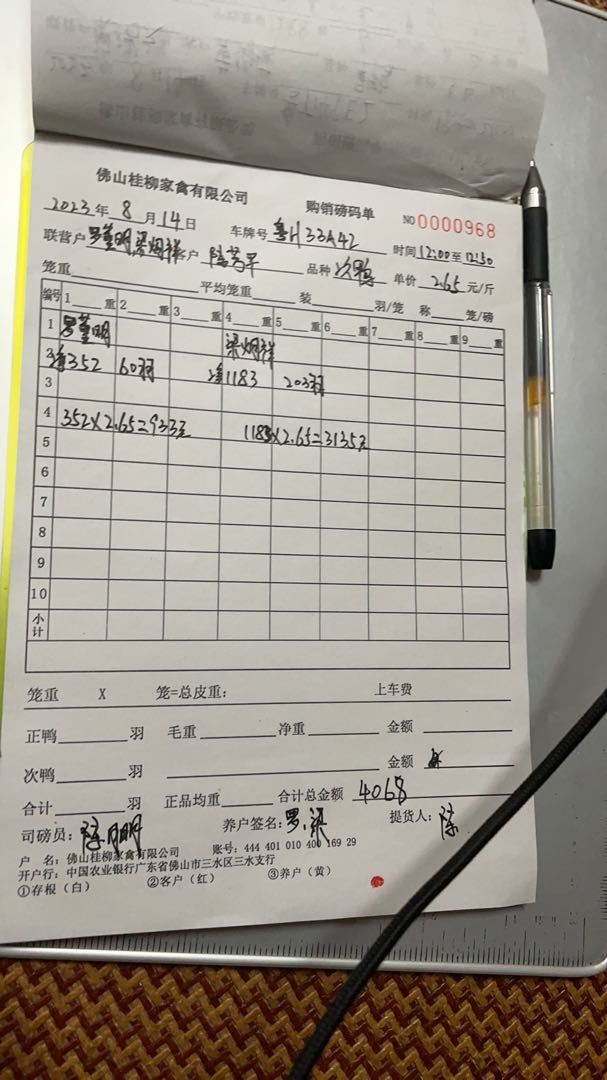 佛山桂柳家禽有限公司 购销磅码单 NO 0000968
2023 年 8 月 14 日 车牌号 粤H 33A42 时间 12:00 至 12:50
联营户 罗 明,梁炳祥 客户 陈 平 品种 次鸭 单价 2.65 元/斤
笼重 平均笼重 装 羽/笼 称 笼/磅
编号 1 重 2 重 3 重 4 重 5 重 6 重 7 重 8 重 9 重
1 罗 明 梁炳祥
2 净352 60羽 净1183 203羽
3
4 352×2.65=933元 1183×2.65=3135元
5
6
7
8
9
10
小计
笼重 X 笼=总皮重: 上车费
正鸭 羽 毛重 净重 金额
次鸭 羽 金额
合计 羽 正品均重 合计总金额 4068
司磅员: 陈 明 养户签名: 罗、梁 提货人: 陈
户 名: 佛山桂柳家禽有限公司 账号: 444 401 010 400 169 29
开户行: 中国农业银行广东省佛山市三水区三水支行
①存根（白） ②客户（红） ③养户（黄）